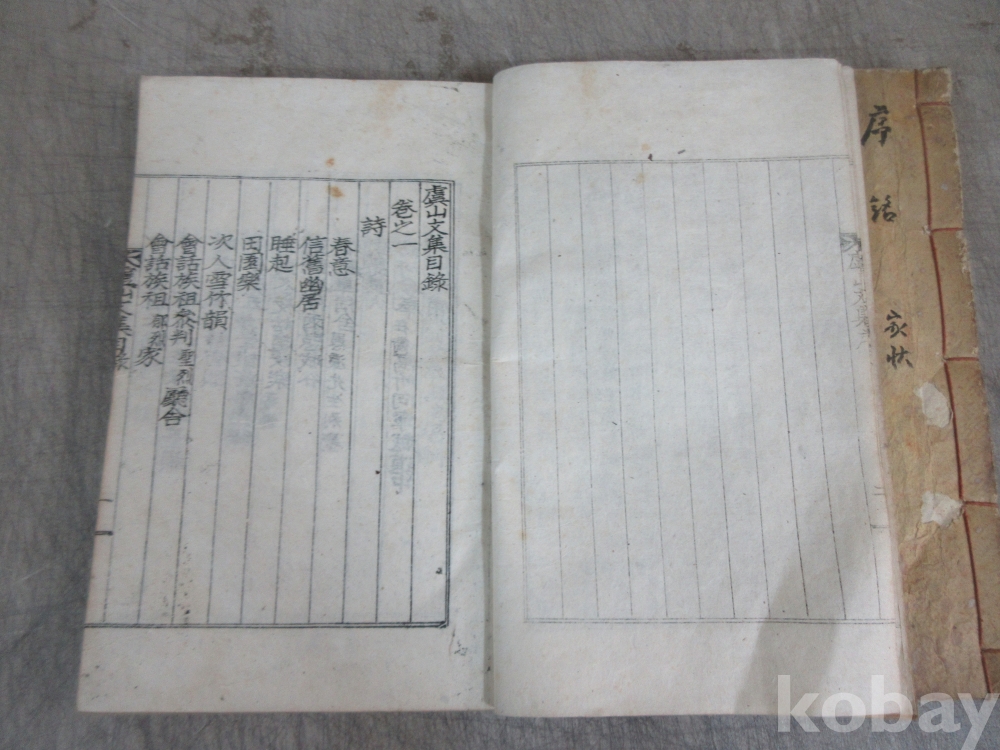 序
銘
家狀
虞山文集目錄
卷之一
詩
春意
信舊幽居
睡起
田園樂
次人雪竹韻
會話族祖參判聖烈
會話族祖 家
山文集目錄
一
二
kobay